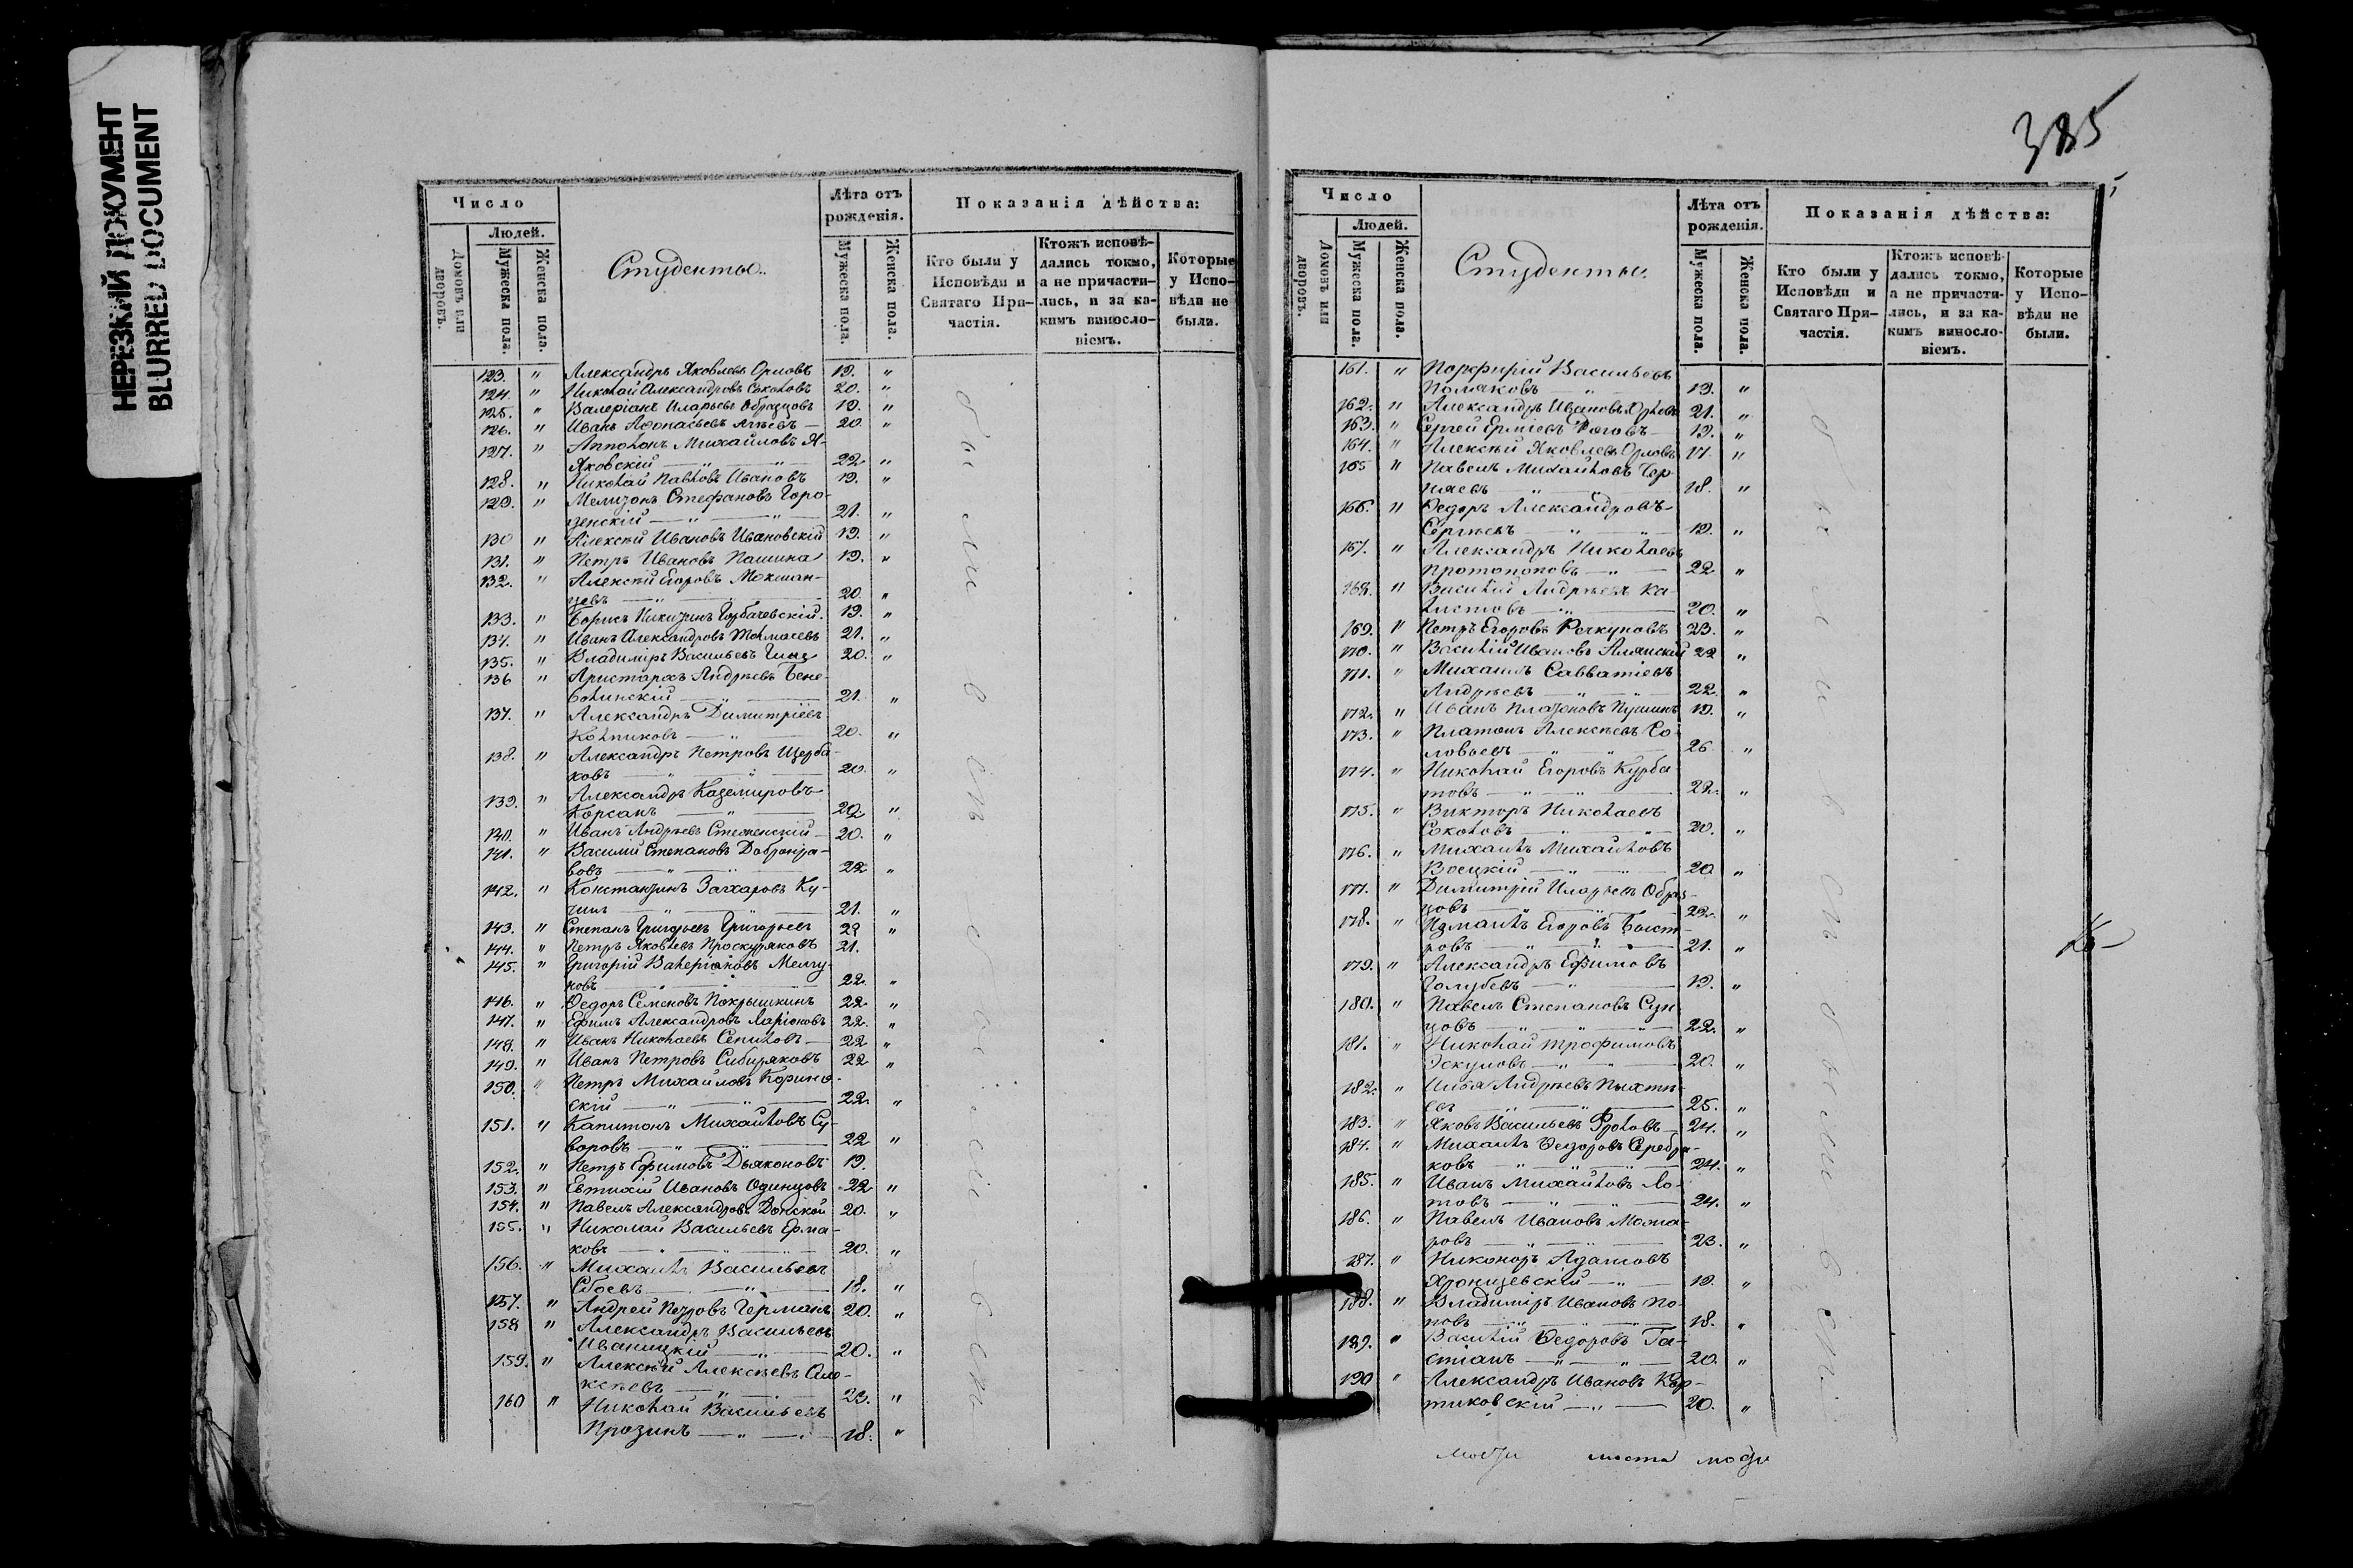 НЕРЕЗКИЙ ДОКУМЕНТ
BLURRED DOCUMENT
Число
Людей.
Домовъ или дворовъ.
Мужеска пола.
Женска пола.
Студенты.
Лѣта отъ рожденія.
Мужеска пола.
Женска пола.
Показанія дѣйства:
Кто были у Исповѣди и Святаго При-
частія.
Ктожъ исповѣ-
дались токмо,
а не причасти-
лись, и за ка-
кимъ винословіемъ.
Которые
у Испо-
вѣди не
были.
123. " Александръ Яковлевъ Орловъ 19. "
124. " Николай Александровъ Соколовъ 20. "
125. " Валеріанъ Иларьевъ Образцовъ 19. "
126. " Иванъ Афонасьевъ — 20. "
127. " Апполонъ Михайловъ Я-
яковскій — " — " — 22 "
128. " Николай Павловъ Ивановъ 19. "
129. " Стефановъ Горо-
денскій — " — " — 21. "
130 " Алексѣй Ивановъ Ивановскій 19. "
131. " Петръ Ивановъ Пашина 19. "
132. " Алексѣй Егоровъ Мокшан-
цевъ — " — " — 20. "
133. " Борисъ Никитинъ Горбачевскій. 19. "
134. " Иванъ Александровъ Толмачевъ 21. "
135. " Владиміръ Васильевъ 20. "
136 " Аристархъ Андрѣевъ Бене-
воленскій — " — 21. "
137. " Александръ Димитріевъ
Колпиковъ — " — 20. "
138. " Александръ Петровъ Щерба-
ковъ — " — " — 20. "
139. " Александръ Каземировъ
Корсакъ — " — 20 "
140. " Иванъ Андрѣевъ — 20. "
141. " Василій Степановъ Добронра-
вовъ — " — " — 22 "
142. " Константинъ Захаровъ Ку-
— " — " — 21. "
143. " Степанъ Григорьевъ Григорьевъ 22 "
144. " Петръ Яковлевъ Проскуряковъ 21.
145. " Григорій Валеріановъ Мелгу-
новъ — " — " — 22. "
146. " Ѳедоръ Семеновъ Покрышкинъ 22. "
147. " Ефимъ Александровъ Ларіоновъ 22. "
148. " Иванъ Николаевъ Сепиловъ — 22 "
149. " Иванъ Петровъ Сибиряковъ 22 "
150. " Петръ Михайловъ Корино-
скій — " — " — 22. "
151. " Капитонъ Михайловъ Су-
воровъ — " — " — 22 "
152. " Петръ Ефимовъ Дьяконовъ 19.
153. " Евтихій Ивановъ Одинцовъ 22 "
154. " Павелъ Александровъ Донской 20. "
155. " Николай Васильевъ Ерма-
ковъ — " — " — 20. "
156. " Михаилъ Васильевъ
Сбоевъ — " — 18. "
157. " Андрей Петровъ Германъ 20. "
158 " Александръ Васильевъ
Иваницкій — " — 20. "
159. " Алексѣй Алексѣевъ Але-
ксѣевъ — " — 23. "
160 " Николай Васильевъ
Прозинъ — " — 18. "
были въ
385
Число
Людей.
Домовъ или дворовъ.
Мужеска пола.
Женска пола.
Студенты.
Лѣта отъ рожденія.
Мужеска пола.
Женска пола.
Показанія дѣйства:
Кто были у
Исповѣди и
Святаго При-
частія.
Ктожъ исповѣ-
дались токмо,
а не причасти-
лись, и за ка-
кимъ винословіемъ.
Которые
у Испо-
вѣди не
были.
161. " Порфирій Васильевъ
Поляковъ " — 19. "
162. " Александръ Ивановъ 21. "
163. " Сергей Ерміевъ Роговъ — 19. "
164. " Алексѣй Яковлевъ Орловъ 17. "
165 " Павелъ Михайловъ Чер-
няевъ — " — " — 18. "
166. " Ѳедоръ Александровъ
Сергѣевъ " — " — 19. "
167. " Александръ Николаевъ
Протопоповъ — " — 22 "
168. " Василій Андрѣевъ Ка-
листовъ — " — 20. "
169. " Петръ Егоровъ Речкуновъ 23. "
170. " Василій Ивановъ Алянскій 22 "
171. " Михаилъ Савватіевъ
Андрѣевъ — " — " — 22. "
172. " Иванъ Платоновъ Пушкинъ 19. "
173. " Платонъ Алексѣевъ Со-
ловьевъ — " — " — 26 "
174. " Николай Егоровъ Курба-
товъ — " — " — 22. "
175. " Викторъ Николаевъ
Соколовъ — " — " — 20. "
176. " Михаилъ Михайловъ
Воецкій — " — " — 20 "
177. " Димитрій Иларьевъ Образ-
цовъ — " — " — 22. "
178. " Измаилъ Егоровъ Быст-
ровъ — " — " — 21. "
179. " Александръ Ефимовъ
Голубевъ — " — 19. "
180. " Павелъ Степановъ Сун-
цовъ — " — " — " — 22. "
181. " Николай Трофимовъ
Эскуловъ — " — " — 20. "
182. " Илья Андрѣевъ Пыхтѣ-
евъ — " — " — 25. "
183. " Яковъ Васильевъ Фроловъ — 24. "
184. " Михаилъ Ѳедоровъ Серебря-
ковъ — " — " — " — 24. "
185. " Иванъ Михайловъ Ло-
товъ — " — " — 24. "
186. " Павелъ Ивановъ Можа-
ровъ — " — " — 23. "
187. " Никоноръ Адамовъ
Хронщевскій — " — 19. "
188. " Владиміръ Ивановъ По-
повъ — " — " — " — 18. "
189. " Василій Ѳедоровъ Га-
стіанъ — " — " — 20. "
190 " Александръ Ивановъ Кор-
тиковскій — " — 20. "